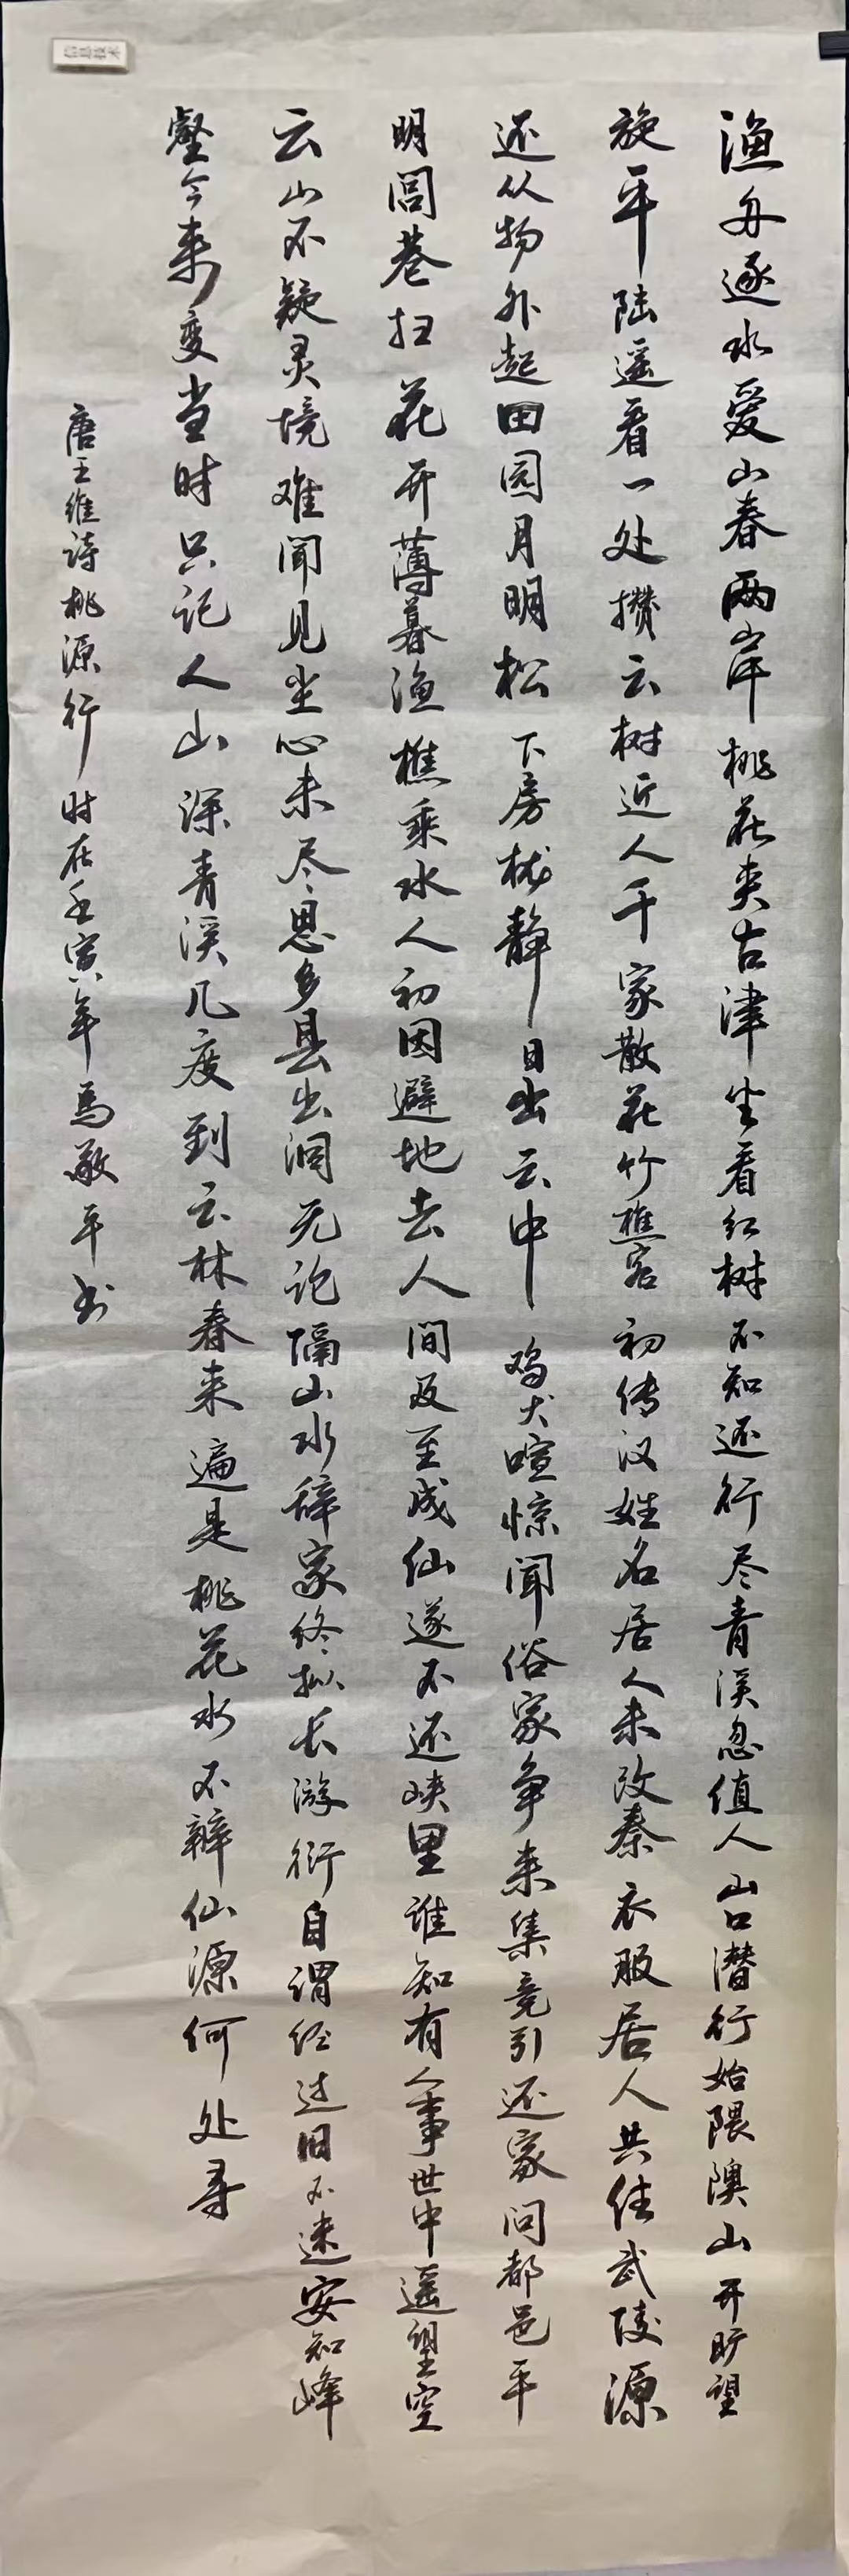 渔舟逐水爱山春两岸桃花夹古津坐看红树不知还行尽青溪忽值人山口潜行始隈隩山开旷望
旋平陆遥看一处攒云树近人千家散花竹樵客初传汉姓名居人未改秦衣服居人共住武陵源
还从物外起田园月明松下房栊静日出云中鸡犬喧惊闻俗家争来集竞引还家问都邑平
明闾巷扫花开薄暮渔樵乘水人初因避地去人间及至成仙遂不还峡里谁知有人事世中遥望空
云山不疑灵境难闻见尘心未尽思乡县出洞无论隔山水辞家终拟长游衍自谓经过旧不迷安知峰
壑今来变当时只记入山深青溪几度到云林春来遍是桃花水不辨仙源何处寻
唐王维诗桃源行时在壬寅年马敬平书